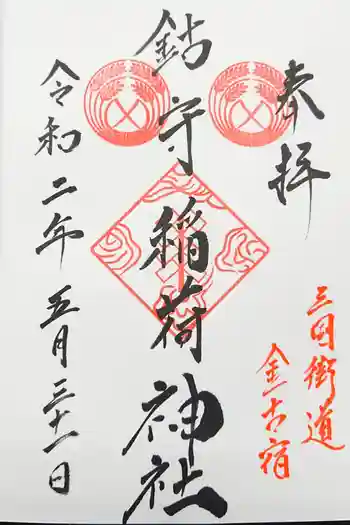 奉拝
三国街道
金古宿
鈷守稲荷神社
令和二年 五月三十一日